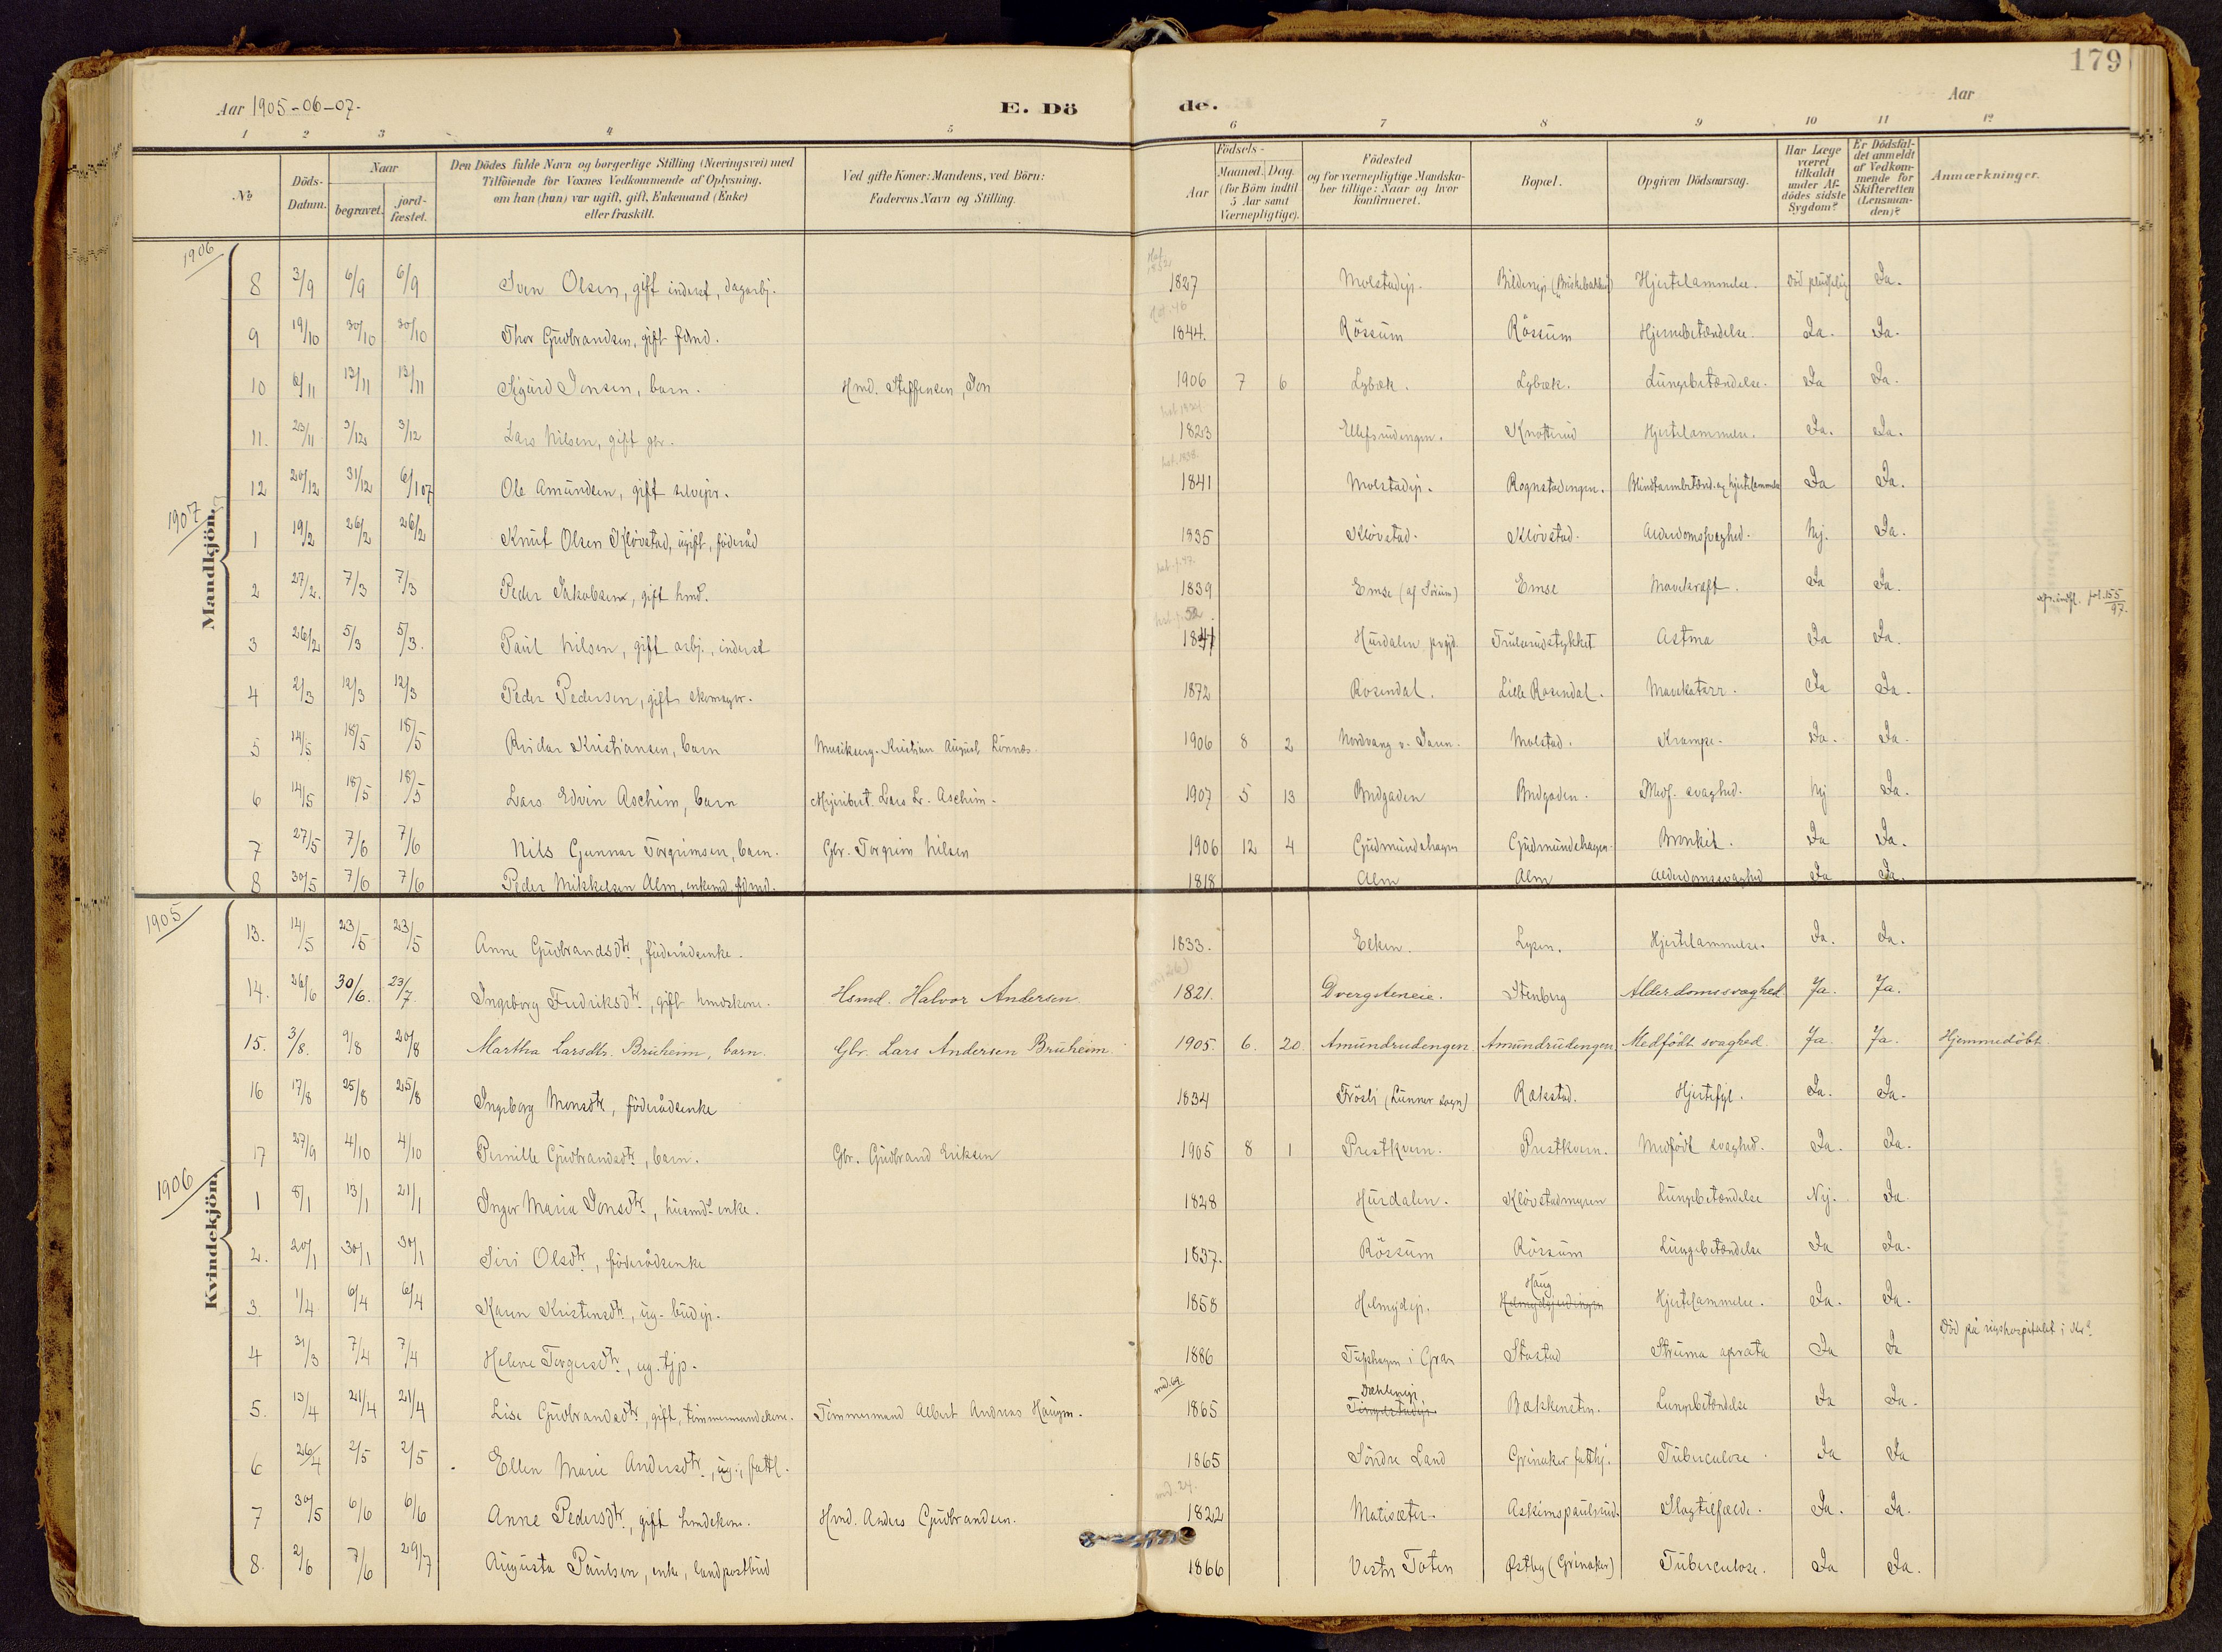 179
Aar 1905-06-07-
E. Dö
de.
Aar
1 2 3 4 5 6 7 8 9 10 11 12
No
Döds-Datum.
Naar
begravet.
jord-fæstet.
Den Dödes fulde Navn og borgerlige Stilling (Næringsvei) med
Tilföiende for Voxnes Vedkommende af Oplysning,
om han (hun) var ugift, gift, Enkemand (Enke)
eller fraskilt.
Ved gifte Koner: Mandens, ved Börn:
Faderens Navn og Stilling.
Aar
Födsels-
Maaned. Dag.
(for Börn indtil
5 Aar samt
Værnepligtige).
Födested
og for værnepligtige Mandska-
ber tillige: Naar og hvor
konfirmeret.
Bopæl.
Opgiven Dödsaarsag.
Har Læge
været
tilkaldt
under Af-
dödes sidste
Sygdom?
Er Dödsfal-
det anmeldt
af Vedkom-
mende for
Skifteretten
(Lensman-
den)?
Anmærkninger.
1906
Mandkjön.
8 3/9 6/9 6/9 Iver Olsen, gift inderst, dagarbj. 1827 Molstadej. Hjertelammelse. Död pludselig Ja.
9 19/10 30/10 30/10 Thor Gudbrandsen, gift fdmd. 1844. Rössum Rössum Hjernebetændelse. Ja. Ja.
10 6/11 13/11 13/11 Sigurd Jensen, barn. Hmd. Steffensen, Jon 1906 7 6 Lybæk. Lybæk. Lungebetændelse. Ja Ja.
11. 23/11 3/12 3/12 Lars Nilsen, gift gbr. 1823 Ellefsrudengen. Knotterud Hjertelammelse. Ja. Ja.
12 20/12 31/12 6/1 07 Ole Amundsen, gift selvejer. 1841 Molstadej. Rognstadengen. Blindtarmbetænd. og hjertelammelse Ja Ja.
1907
1 19/2 26/2 26/2 Knut Olsen Klövstad, ugift, föderåd 1835 Klövstad. Klövstad. Alderdomssvaghed. Nej. Ja.
2 27/2. 7/3 7/3 Peder Jakobsen, gift hmd. 1839 Emse (af Sörum) Emse Mavekræft. Ja Ja. fol. 155/97.
3 26/2 5/3 5/3. Paul Nilsen, gift arbj., inderst 1841 Hurdalen prgjd Trulserudstykket Astma Ja Ja.
4 2/3 12/3 12/3 Peder Pedersen, gift skomager. 1872 Rosendal. Lille Rosendal. Mavekatarr. Ja Ja.
5 14/5 18/5 18/5 Reidar Kristiansen, barn Musikserg. Kristian August Linnæs. 1906 8 2 Nordvang v. Jaren. Molstad. Krampe. Ja. Ja.
6 14/5 18/5 18/5 Lars Edvin Aschim, barn Mejeribest. Lars L. Aschim. 1907 5 13 Bredgaden Bredgaden. Medf. svaghed. Nej Ja.
7 27/5 7/6 7/6 Nils Gunnar Torgrimsen, barn. Gbr. Torgrim Nilsen 1906 12 4 Gudmundshagen Gudmundshagen. Bronkit. Ja Ja.
8 30/5 7/6 7/6 Peder Mikkelsen Alm, enkemd. fdmd. 1818 Alm Alm Alderdomssvaghed Ja Ja.
1905
Kvindekjön.
13. 14/5 23/5 23/5 Anne Gudbrandsdtr., föderådsenke. 1833. Elken. Lysen. Hjertelammelse. Ja. Ja.
14. 26/6 30/6. 23/7 Ingeborg Fredriksdtr., gift hmdskone. Hsmd. Halvor Andersen. 1821. Dvergsteneie. Stenberg Alderdomssvaghed. Ja. Ja.
15. 3/8. 9/8 20/8 Martha Larsdtr. Bruheim, barn. Gbr. Lars Andersen Bruheim. 1905. 6. 20. Amundrudengen. Amundrudengen. Medfödt svaghed. Ja. Ja. Hjemmedöbt.
16 17/8 25/8 25/8 Ingeborg Monsdtr., föderådsenke 1834 Frösli (Lunner sogn) Rækstad. Hjertefejl. Ja. Ja.
17 27/9 4/10 4/10 Pernille Gudbrandsdtr., barn. Gbr. Gudbrand Eriksen 1905 8 1 Prestkvern. Prestkvern. Medfödt svaghed. Ja. Ja.
1906
1 8/1 13/1 21/1 Inger Maria Jonsdtr., husmds. enke. 1828 Hurdalen. Klövstadmyren Lungebetændelse Nej. Ja.
2. 20/1 30/1 30/1 Siri Olsdtr., föderådsenke 1837. Rössum Rössum Lungebetændelse Ja Ja.
3. 1/4 6/4 6/4 Karen Kristensdtr., ug. budeje. 1858 Helmejdej. Haug Hjertelammelse. Ja. Ja.
4 31/3 7/4 7/4 Helene Torgersdtr., ug. tjp. 1886 i Gran Stastad Struma Ja Ja Död på rigshospitalet i Kr.a
5. 13/4 21/4 21/4 Lise Gudbrandsdtr., gift, timmermandskone. Timmermand Albert Andreas Haugen. md. 64. 1865 Dæhlenej. Tingelstadej. Bakkensten. Lungebetændelse Ja Ja.
6 26/4 2/5 2/5 Ellen Marie Andersdtr., ug., fattl. 1865 Söndre Land Grinaker fatthj. Tuberculose. Ja Ja
7 30/5 6/6 6/6 Anne Pedersdtr., gift hmdskone. Hmd. Anders Gudbrandsen. md. 24. 1822 Matisæter. Askimspaulsrud. Slagtilfælde. Ja. Ja.
8. 2/6 7/6 29/7 Augusta Paulsen, enke, landpostbud 1866 Vestre Toten Østby (Grinaker) Tuberculose. Ja Ja.